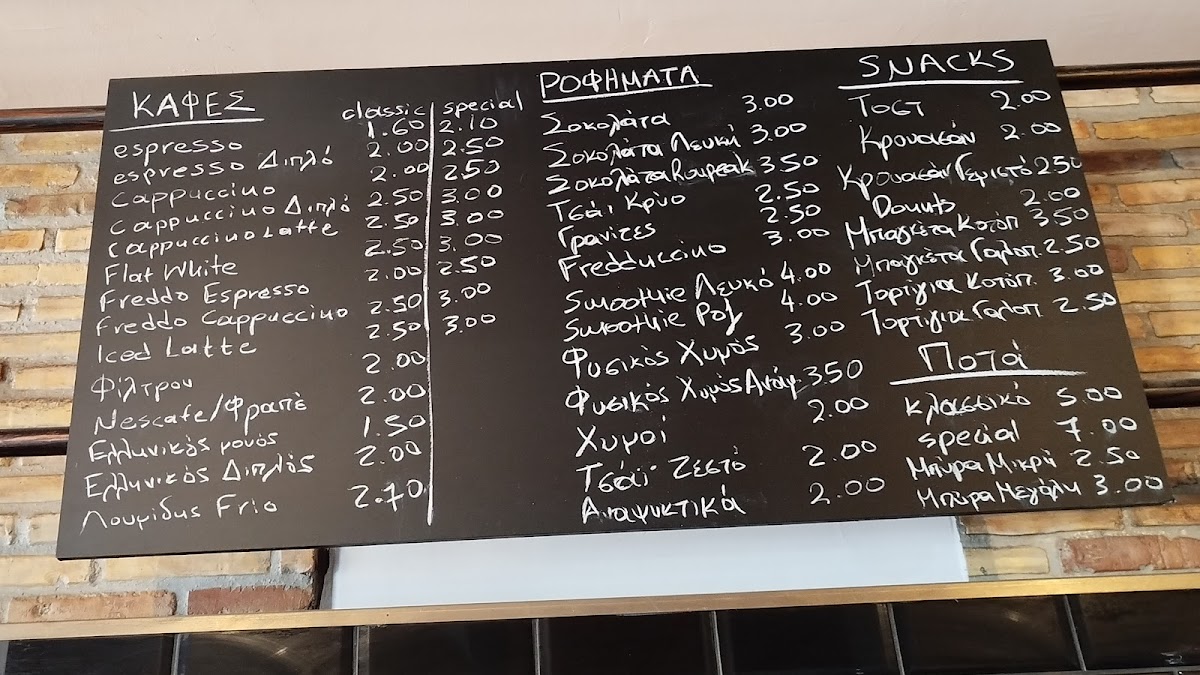 ΚΑΦΕΣ classic special
espresso 1.60 2.10
espresso Διπλό 2.00 2.50
Cappuccino 2.00 2.50
Cappuccino Διπλό 2.50 3.00
Cappuccino Latte 2.50 3.00
Flat White 2.50 3.00
Freddo Espresso 2.00 2.50
Freddo Cappuccino 2.50 3.00
Iced Latte 2.50 3.00
Φίλτρου 2.00
Nescafe/Φραπέ 2.00
Ελληνικός μονός 1.50
Ελληνικός Διπλός 2.00
Λουμίδης Frio 2.70
ΡΟΦΗΜΑΤΑ
Σοκολάτα 3.00
Σοκολάτα Λευκή 3.00
Σοκολάτα 3.50
Τσάι Κρύο 2.50
Γρανίτες 2.50
Fredduccino 3.00
Smoothie Λευκό 4.00
Smoothie Ροζ 4.00
Φυσικός Χυμός 3.00
Φυσικός Χυμός Ανάμ 3.50
Χυμοί 2.00
Τσάι Ζεστό 2.00
Αναψυκτικά 2.00
SNACKS
Τοστ 2.00
Κρουασάν 2.00
Κρουασάν Γεμιστό 2.50
Donuts 2.00
Μπαγκέτα Κοτόπ 3.50
Μπαγκέτα Γαλοπ. 2.50
Τορτίγια Κοτόπ. 3.00
Τορτίγια Γαλοπ. 2.50
Ποτά
κλασσικό 5.00
special 7.00
Μπύρα Μικρή 2.50
Μπύρα Μεγάλη 3.00